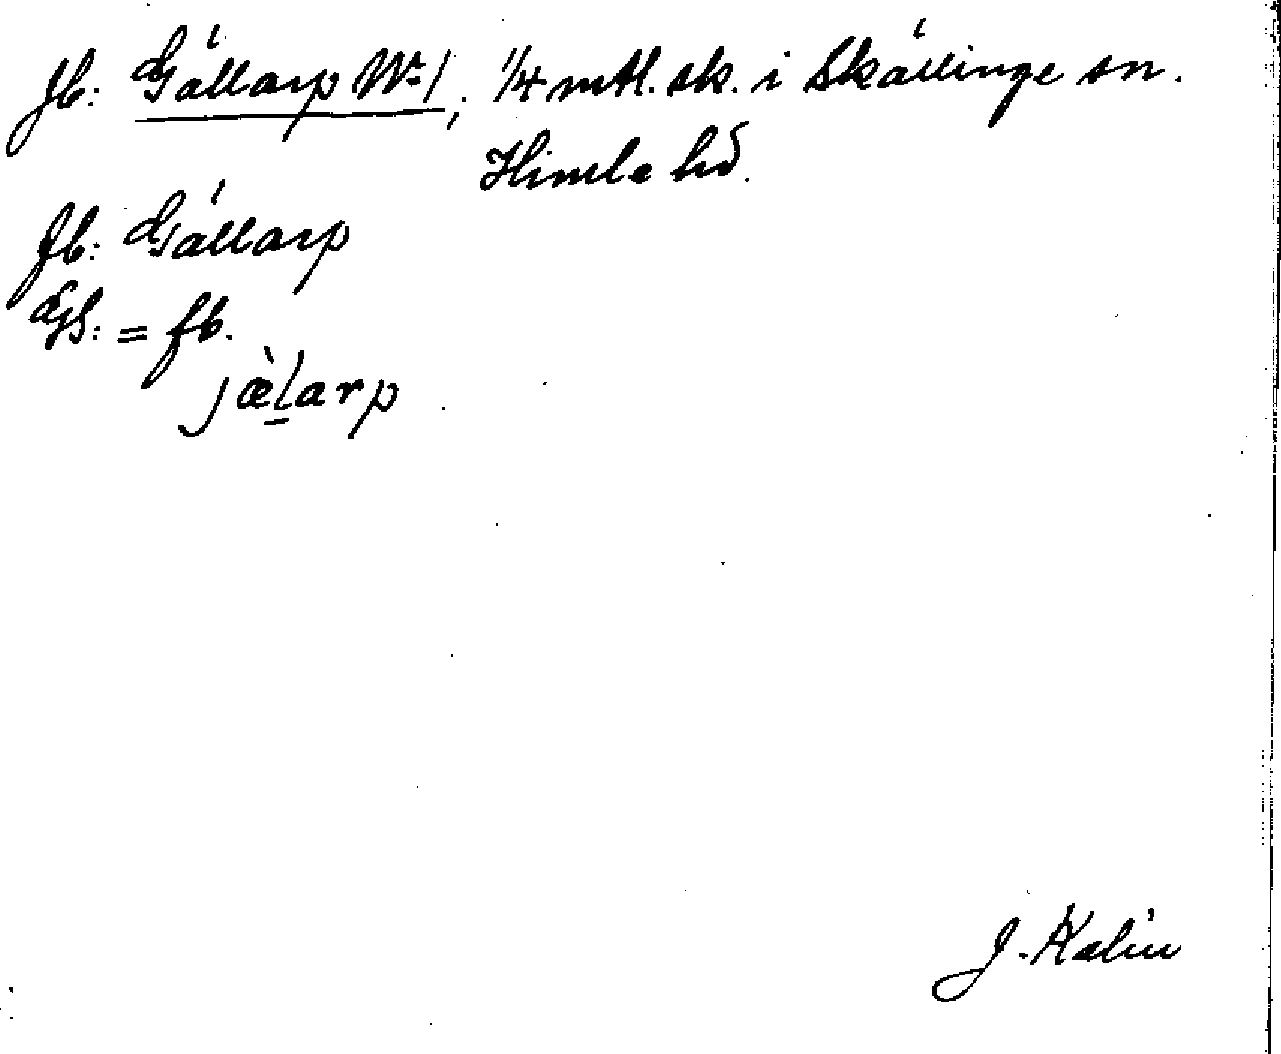 Jb: Gällarp No 1, 1/4 mtl. sk. i Skällinge sn.
Himle hd.
Jb: Gällarp
GS: = fb.
jæ̀l̠arp
J. Kalin